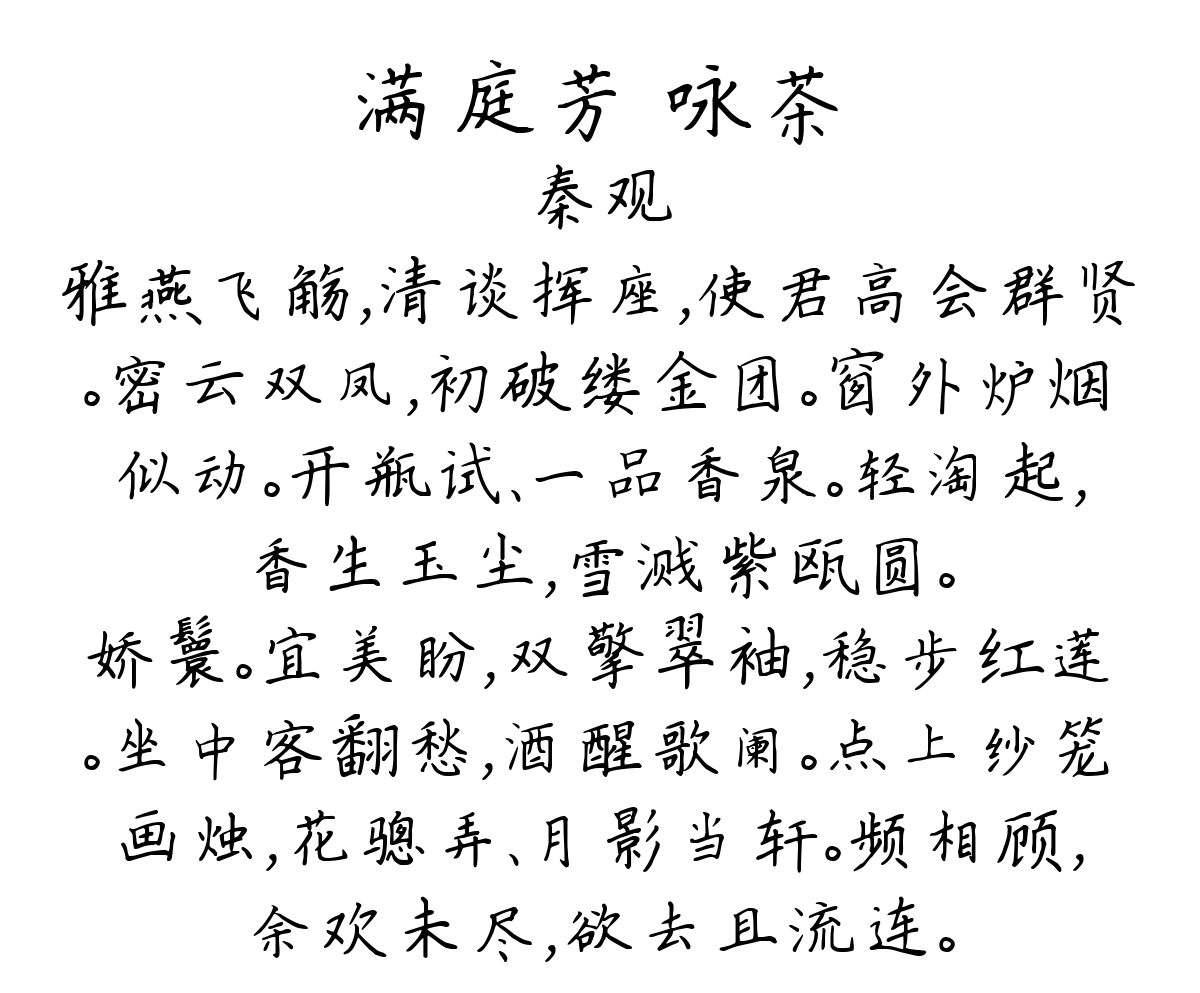 满庭芳 咏茶
秦观
雅燕飞觞,清谈挥座,使君高会群贤
。密云双凤,初破缕金团。窗外炉烟
似动。开瓶试、一品香泉。轻淘起,
香生玉尘,雪溅紫瓯圆。
娇鬟。宜美盼,双擎翠袖,稳步红莲
。坐中客翻愁,酒醒歌阑。点上纱笼
画烛,花骢弄、月影当轩。频相顾,
余欢未尽,欲去且流连。